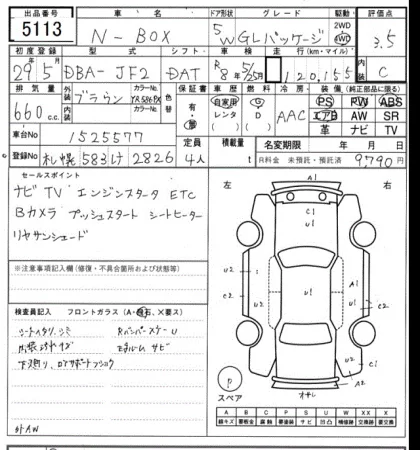 出品番号 車名 ドア形状 グレード 駆動 評価点
5113 N-BOX 5 W GLパッケージ 2WD 4WD 3.5
初度登録 型式 シフト 車検 走行(km・マイル) 内装
29年5月 DBA-JF2 DAT R8年5月 120,155 C
排気量 外装色 カラーNo. 色替 保証書 車歴 燃料 冷房 装備(純正部品に限る)
660cc ブラウン YR586PX 有・無 自家用 レンタ G D AAC PS PW ABS
エアB AW SR
革 ナビ TV
車台No 1525577 定員 積載量 名変期限 年 月 日
登録No 札幌 583 け 2826 4人 t R料金 未預託・預託済 9,790円
セールスポイント
ナビ TV エンジンスタータ ETC
Bカメラ プッシュスタート シートヒーター
リヤサンシェード
※注意事項記入欄(修復・不具合箇所および状態)
検査員記入 フロントガラス(A・飛石、X要ス)
シートイタリ、シミ Rバンパースケ-U
下廻り、ロアサポートフショク
外AW
左 右
A1
C1
U1
U2 U2
U1 U1
U2
C2 C1
A2
スペア オサレ
A B C P S U W X XX
線キズ 要板金 腐触 要塗装 サビ 凹凸 補修 要交換 交換済